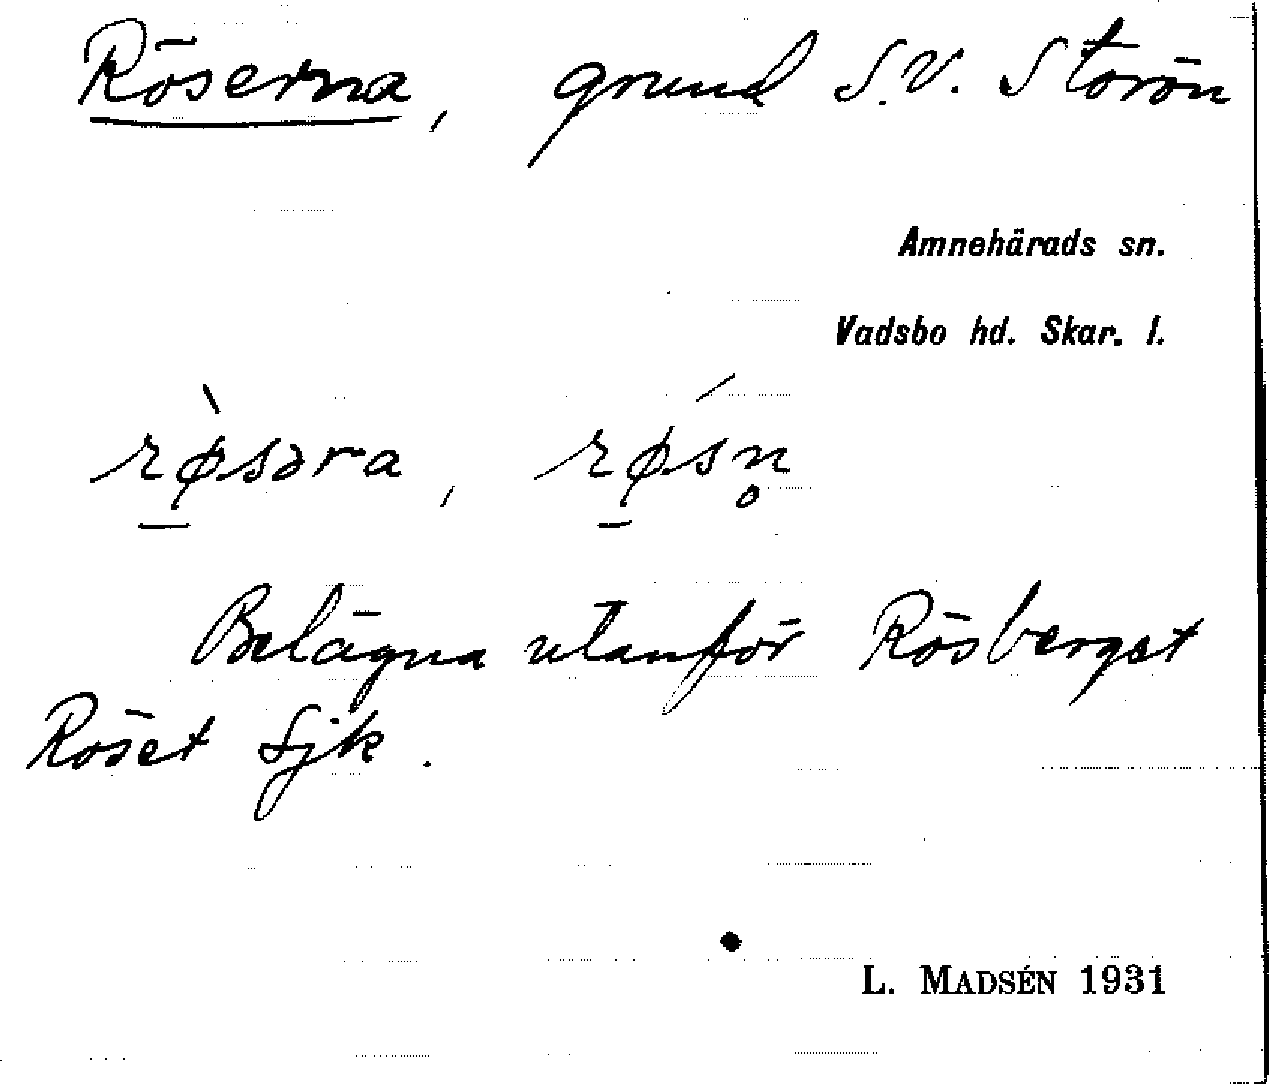 Röserna, grund S.V. Storön
Amnehärads sn.
Vadsbo hd. Skar. l.
rø̱̀səra, rǿ̱sn̥
Belägna utanför Rösberget
Röset Sjk.
L. MADSÉN 1931